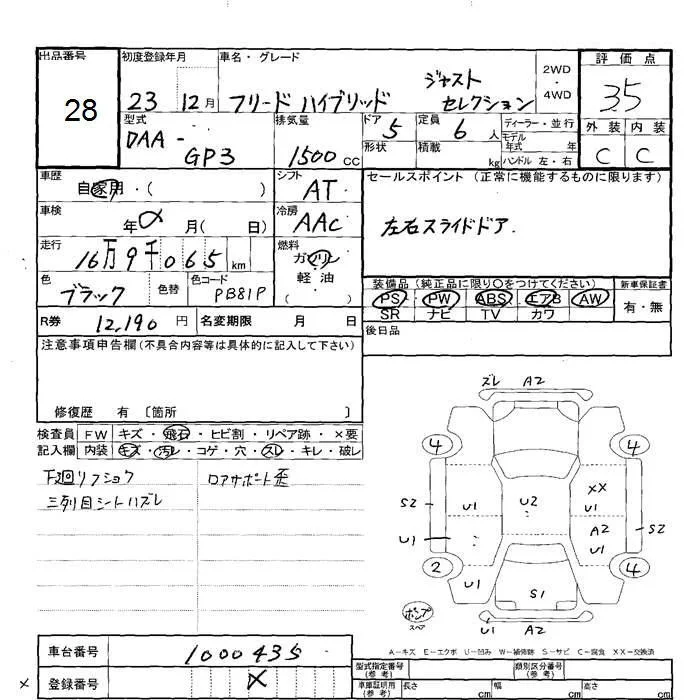 出品番号 28
初度登録年月 23 12月
車名・グレード フリード ハイブリッド ジャスト セレクション
2WD・4WD
評価点 3.5
外装 内装
C C
型式 DAA-GP3
排気量 1500 CC
ドア 5
定員 6 人
ディーラー・並行
モデル年式 年
形状
積載 kg
ハンドル 左・右
車歴 自家用・( )
シフト AT
セールスポイント (正常に機能するものに限ります)
左右スライドドア.
車検 年 月( 日)
冷房 AAC
走行 16万9千065 km
燃料 ガソリン 軽油 ( )
色 ブラック 色替
色コード PB81P
装備品(純正品に限り〇をつけてください)
PS PW ABS エアB AW
SR ナビ TV カワ
新車保証書 有・無
R券 12,190 円
名変期限 月 日
後日品
注意事項申告欄(不具合内容等は具体的に記入して下さい)
修復歴 有 〔箇所 〕
検査員 FW キズ・飛石・ヒビ割・リペア跡・×要
記入欄 内装 キズ・汚レ・コゲ・穴・スレ・キレ・破レ
下廻リフショク ロアサポート歪
三列目シートハズレ
ズレ A2
4 4
S2 U1 U2 XX U1
U1 A2 U1 S2
2 4
U1 S1
ポンプ
スペア
U1 A2
A-キズ E-エクボ U-凹み W-補修跡 S-サビ C-腐食 XX-交換済
車台番号 1000435
型式指定番号(参考) 類別区分番号(参考)
× 登録番号 ×
車庫証明用(参考) 長さ cm 幅 cm 高さ cm